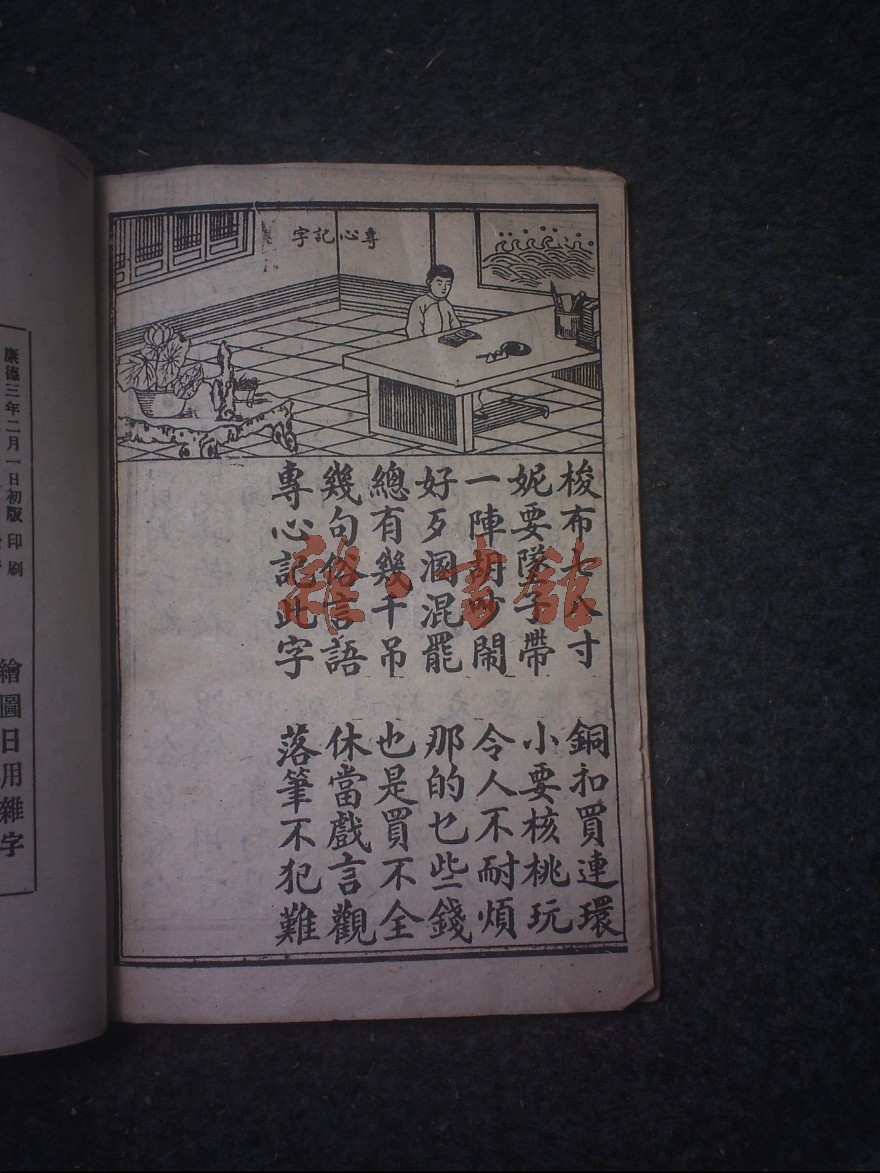 專心記字
梭布七八寸　銅扣買連環
妮要隊子帶　小要核桃玩
一陣胡吵鬧　令人不耐煩
好歹溷混罷　那的乜些錢
總有幾千吊　也是買不全
幾句俗言語　休當戲言觀
專心記此字　落筆不犯難
康德三年二月一日初版印刷
繪圖日用雜字
雜·書館